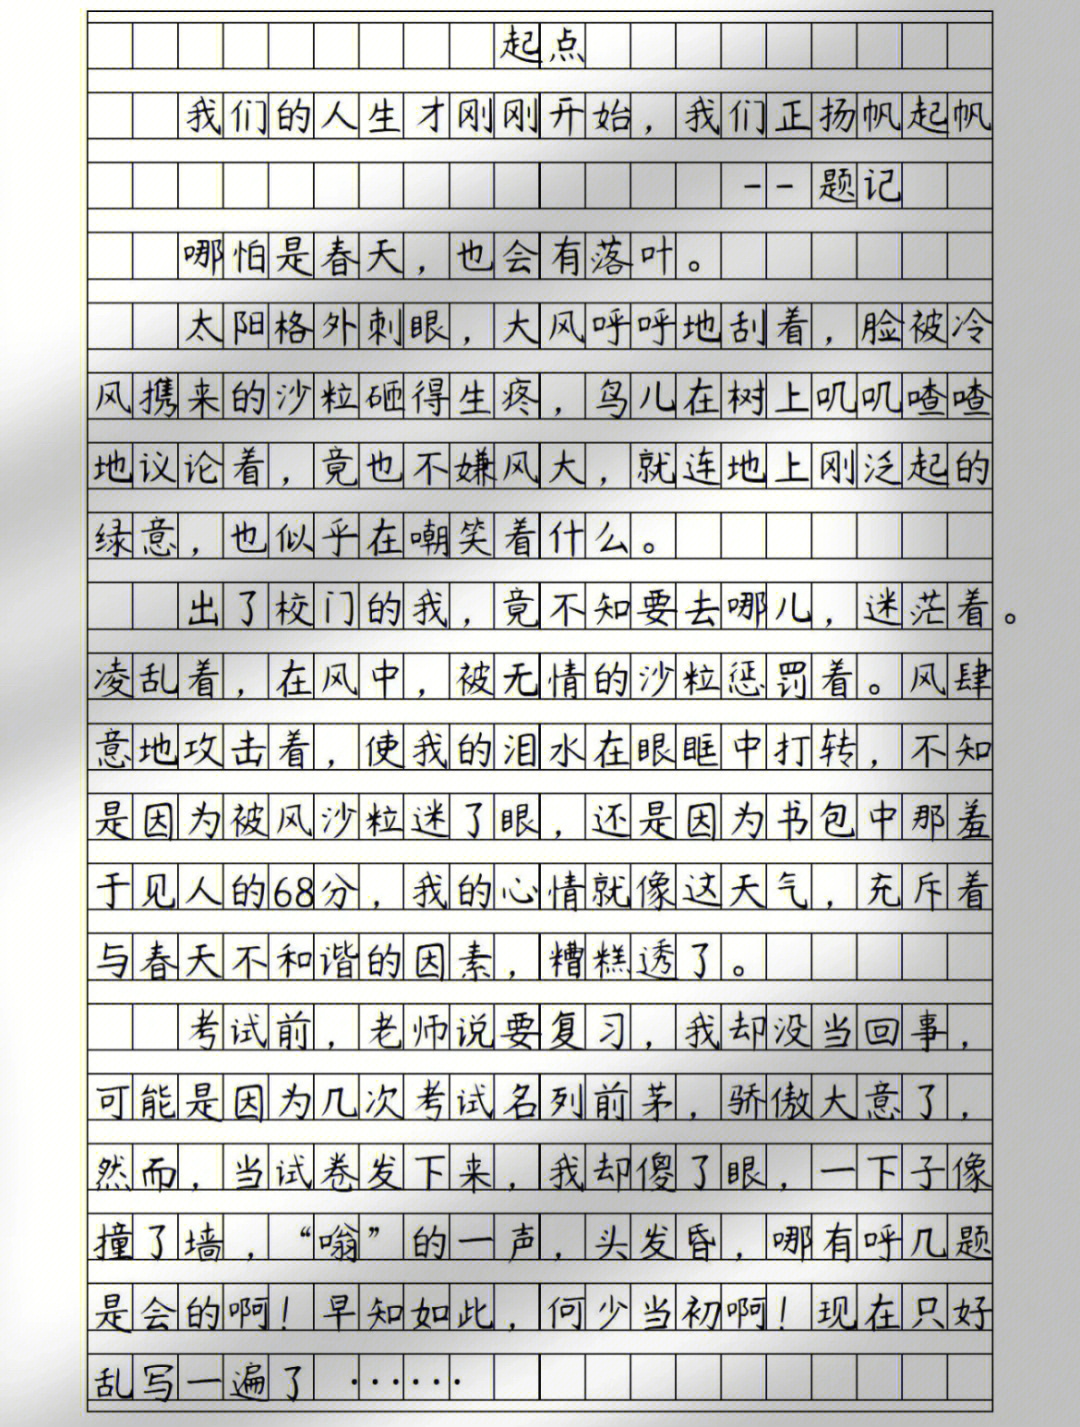 起点
我们的人生才刚刚开始，我们正扬帆起帆
--题记
哪怕是春天，也会有落叶。
太阳格外刺眼，大风呼呼地刮着，脸被冷
风携来的沙粒砸得生疼，鸟儿在树上叽叽喳喳
地议论着，竟也不嫌风大，就连地上刚泛起的
绿意，也似乎在嘲笑着什么。
出了校门的我，竟不知要去哪儿，迷茫着。
凌乱着，在风中，被无情的沙粒惩罚着。风肆
意地攻击着，使我的泪水在眼眶中打转，不知
是因为被风沙粒迷了眼，还是因为书包中那羞
于见人的68分，我的心情就像这天气，充斥着
与春天不和谐的因素，糟糕透了。
考试前，老师说要复习，我却没当回事，
可能是因为几次考试名列前茅，骄傲大意了，
然而，当试卷发下来，我却傻了眼，一下子像
撞了墙，“嗡”的一声，头发昏，哪有呼几题
是会的啊！早知如此，何少当初啊！现在只好
乱写一遍了……